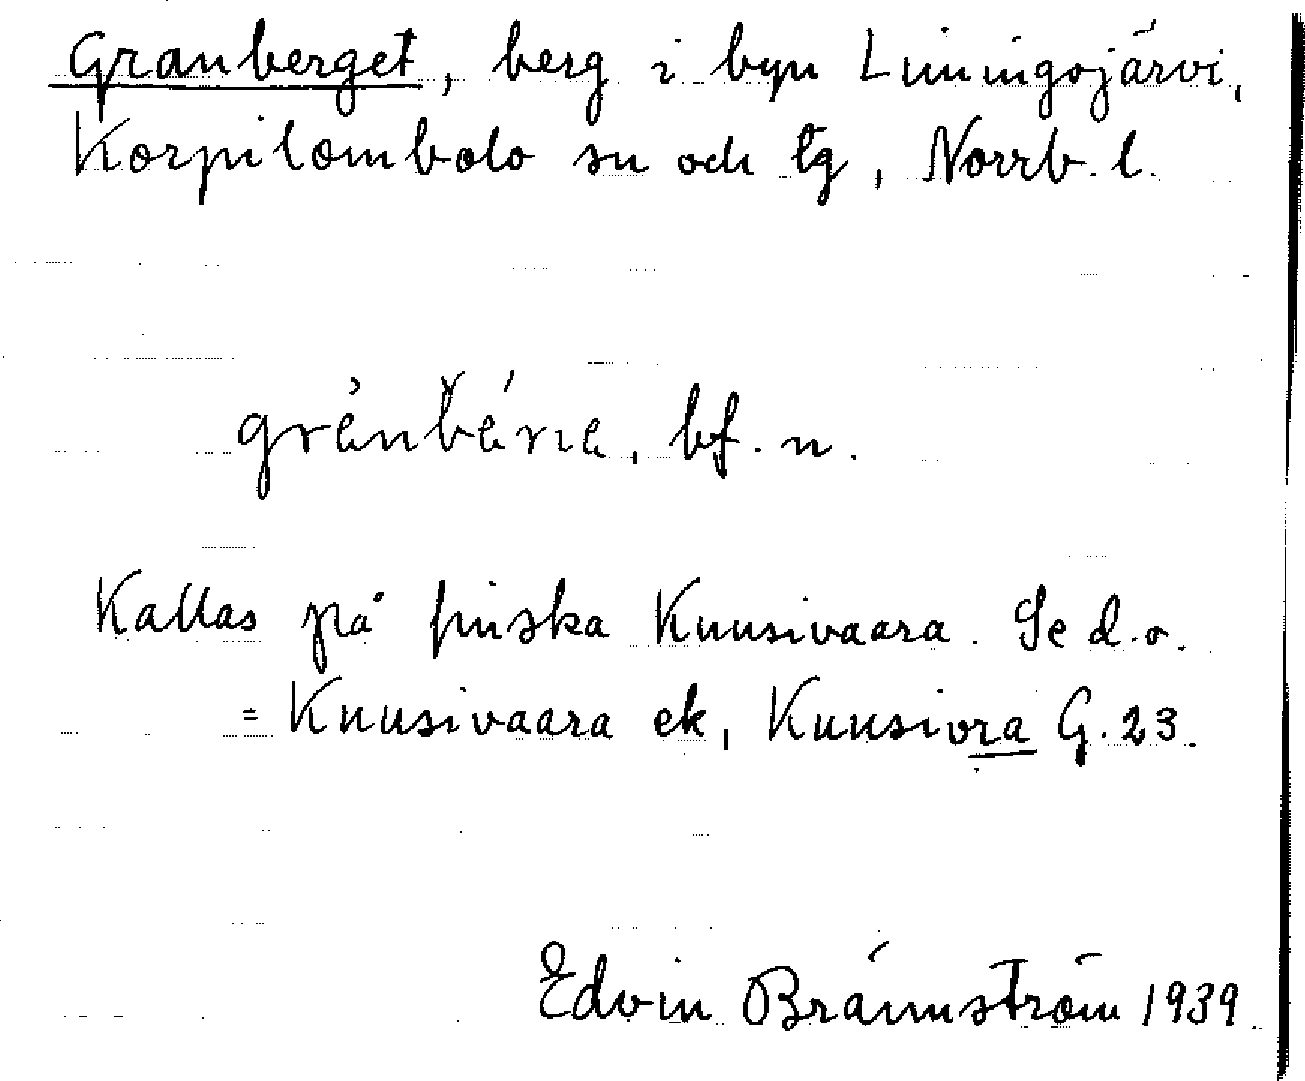 Granberget, berg i byn Liviöjärvi,
Korpilombolo sn och tg, Norrb. l.
bf. n.
Kallas på finska Kuusivaara. Se d. o.
= Kuusivaara ek, Kuusivra G. 23.
Edvin Brännström 1939